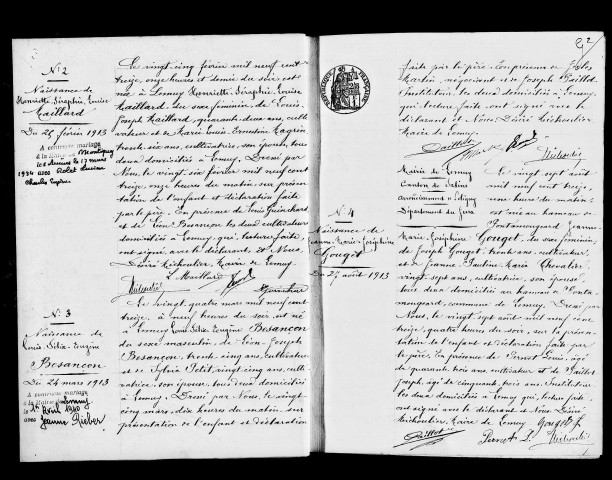 N° 2
Naissance de
Henriette Séraphie Louise
Maillard
Du 25 février 1913
A contracté mariage
à la Mairie de Montigny
le 17 mars
1934 avec Rolet Lucien
Charles
N° 3
Naissance de
Louis Félix Eugène
Besançon
Du 24 mars 1913
A contracté mariage
à la Mairie de Lemuy
le 1er Avril 1940
avec Jeanne Rieber
Le vingt cinq février mil neuf cent
treize, onze heures et demie du soir, est
née à Lemuy Henriette Séraphie Louise
Maillard du sexe féminin de Louis
Joseph Maillard, quarante deux ans, culti-
vateur et de Marie Louise Ernestine Magnin
trente six ans, cultivatrice, son épouse, tous
deux domiciliés à Lemuy. Dressé par
Nous, le vingt six février mil neuf cent
treize, onze heures du matin sur présen-
tation de l'enfant et déclaration faite
par le père. En présence de Louis Guinchard
et de Léon Besançon les deux cultivateurs
domiciliés à Lemuy, qui, lecture faite,
ont signé, avec le déclarant, et Nous
Désiré Michoulier Maire de Lemuy.
L. Maillard
Michoulier
Guinchard
Le vingt quatre mars mil neuf cent
treize, à neuf heures du soir, est né
à Lemuy Louis Félix Eugène Besançon
du sexe masculin de Léon Joseph
Besançon, trente cinq ans, cultivateur
et de Sylvie Petit, vingt cinq ans, culti-
vatrice, son épouse, tous deux domiciliés
à Lemuy. Dressé par Nous, le vingt
cinq mars, dix heures du matin, sur
présentation de l'enfant et déclaration
2
faite par le père. En présence de Jules
Martin, négociant et de Joseph Paillot
Instituteur les deux domiciliés à Lemuy,
qui, lecture faite ont signé avec le
déclarant et Nous Désiré Michoulier
Maire de Lemuy.
Paillot
Michoulier
N° 4
Naissance de
Jeanne Marie Joséphine
Gouget
Du 27 août 1913
Mairie de Lemuy
Canton de Salins
Arrondissement de Poligny
Département du Jura
Le vingt sept août
mil neuf cent treize,
une heure du matin
est née au hameau de
Pontamougeard Jeanne
Marie Joséphine Gouget, du sexe féminin,
de Joseph Gouget, trente ans, cultivateur
et de Jeanne Pauline Marie Chevalier
vingt sept ans, cultivatrice, son épouse,
tous deux domiciliés au hameau de Ponta-
mougeard, commune de Lemuy. Dressé par
Nous, le vingt sept août mil neuf cent
treize, quatre heures du soir, sur la présen-
tation de l'enfant et déclaration faite par
le père. En présence de Pernet Louis, âgé
de quarante trois ans cultivateur et de Paillot
Joseph, âgé de cinquante trois ans, Instituteur
les deux domiciliés à Lemuy qui, lecture faite,
ont signé avec le déclarant et Nous Désiré
Michoulier, Maire de Lemuy. Gouget J.
Paillot Pernet L. Michoulier